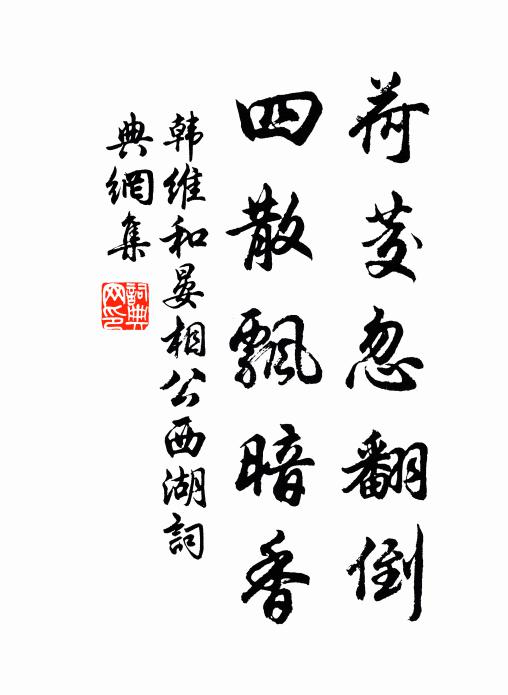 荷芰忽翻倒
四散飄暗香
韩維和晏相公西湖詞
典網集
詞典网印